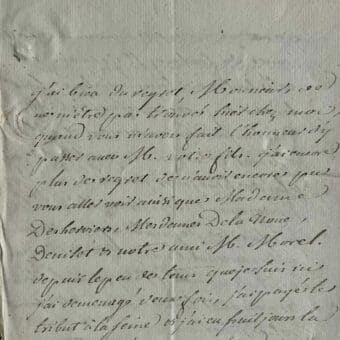 j'ai bien du regret, Monsieur, de
ne m'être pas trouvé hier chez moi,
quand vous m'avez fait l'honneur d'y
passer avec M. votre fils. j'ai encore
plus de regret de n'avoir encore pu
vous aller voir ainsi que Madame
Mesdames De la Noue,
Denisot et notre ami M. Morel.
depuis le peu de tems que je suis ici
j'ai demenagé deux fois, j'ai payé le
tribut à la seine et j'ai eu huit jours la